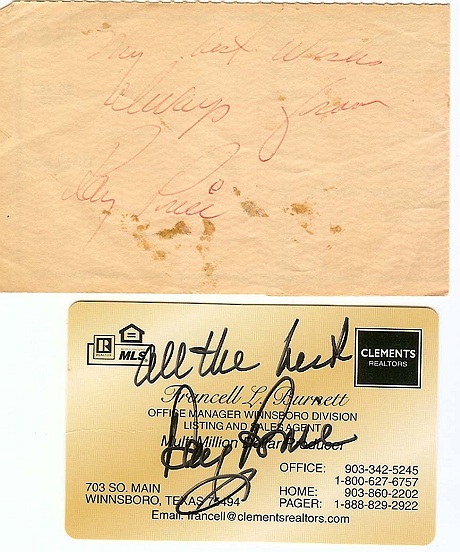 My best wishes
Always from
Ray Price
R
REALTOR
MLS
All the best
CLEMENTS
REALTORS
Francell L. Burnett
OFFICE MANAGER WINNSBORO DIVISION
LISTING AND SALES AGENT
Multi Million Dollar Producer
Ray Price
OFFICE: 903-342-5245
1-800-627-6757
703 SO. MAIN
WINNSBORO, TEXAS 75494
HOME: 903-860-2202
PAGER: 1-888-829-2922
Email: francell@clementsrealtors.com